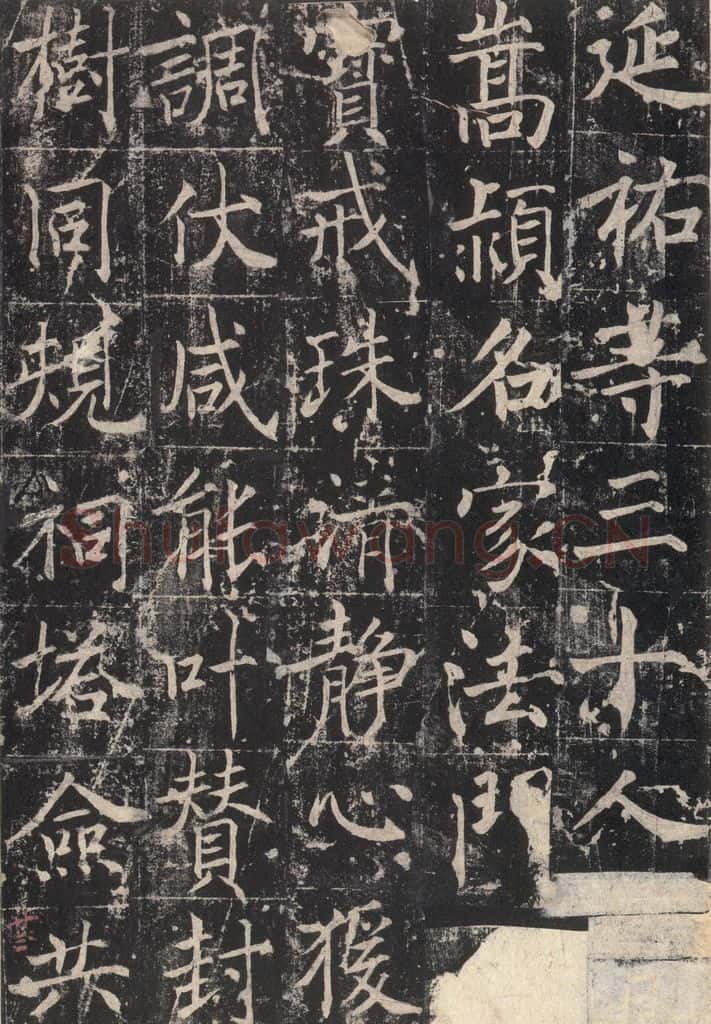 延祐等三十人
嵩潁名家法門
寶戒珠清靜心猨
調伏咸能叶賛封
樹同規祠塔僉共
Shufawang.CN